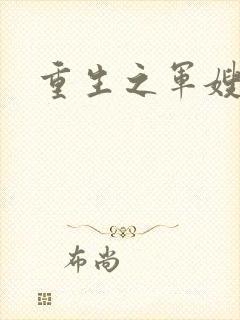 重生之军嫂
布尚